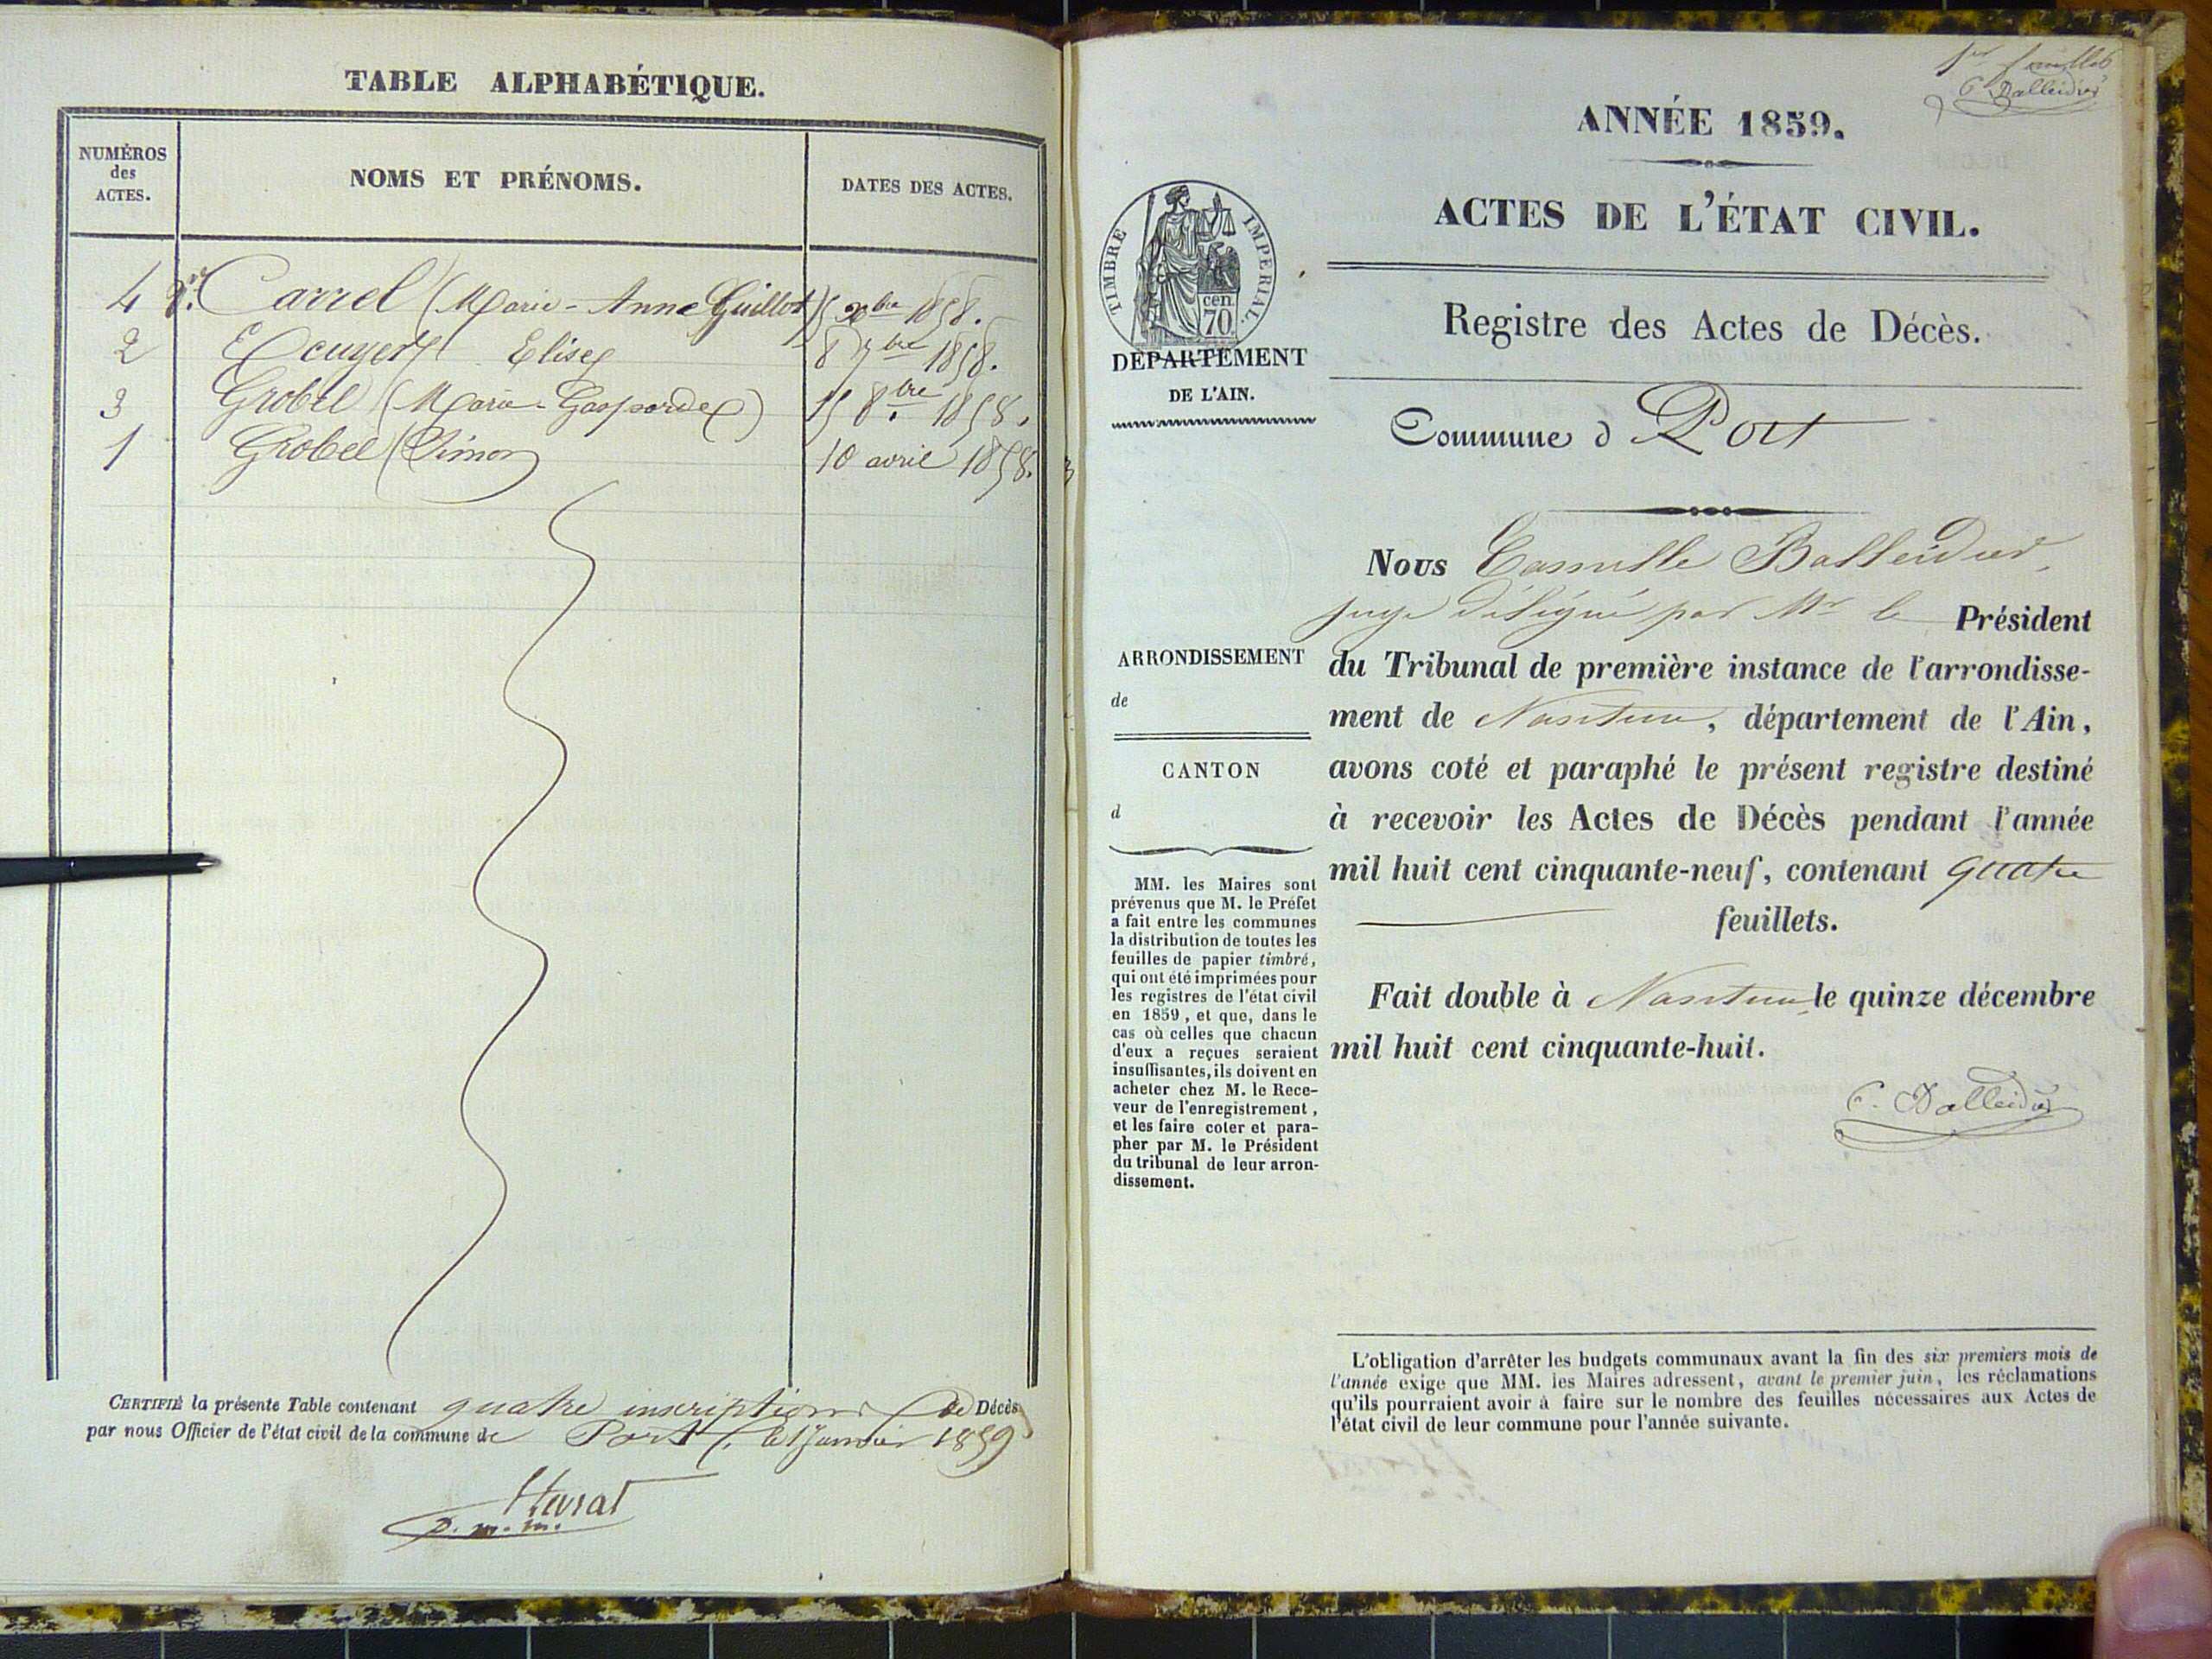 TABLE ALPHABÉTIQUE.
NUMÉROS
des
ACTES.
NOMS ET PRÉNOMS.
DATES DES ACTES.
4 Vve Carrel (Marie-Anne Guillot) 5 xbre 1858.
2 Ecuyer Elise 8 7bre 1858.
3 Grobel (Marie-Gasparde) 15 8bre 1858.
1 Grobel (Simon) 10 avril 1858.
CERTIFIÉ la présente Table contenant quatre inscriptions de Décès
par nous Officier de l'état civil de la commune de Port, le 1 Janvier 1859
1er feuillet
C Balleidier
ANNÉE 1859.
ACTES DE L'ÉTAT CIVIL.
TIMBRE IMPERIAL.
cen.
70
DÉPARTEMENT
DE L'AIN.
Registre des Actes de Décès.
Commune d Port
Nous Camille Balleidier,
juge délégué par Mr le Président
ARRONDISSEMENT
de
du Tribunal de première instance de l'arrondisse-
ment de Nantua, département de l'Ain,
CANTON
d
avons coté et paraphé le présent registre destiné
à recevoir les Actes de Décès pendant l'année
mil huit cent cinquante-neuf, contenant quatre
feuillets.
Fait double à Nantua le quinze décembre
mil huit cent cinquante-huit.
C. Balleidier
MM. les Maires sont
prévenus que M. le Préfet
a fait entre les communes
la distribution de toutes les
feuilles de papier timbré,
qui ont été imprimées pour
les registres de l'état civil
en 1859, et que, dans le
cas où celles que chacun
d'eux a reçues seraient
insuffisantes, ils doivent en
acheter chez M. le Rece-
veur de l'enregistrement,
et les faire coter et para-
pher par M. le Président
du tribunal de leur arron-
dissement.
L'obligation d'arrêter les budgets communaux avant la fin des six premiers mois de
l'année exige que MM. les Maires adressent, avant le premier juin, les réclamations
qu'ils pourraient avoir à faire sur le nombre des feuilles nécessaires aux Actes de
l'état civil de leur commune pour l'année suivante.